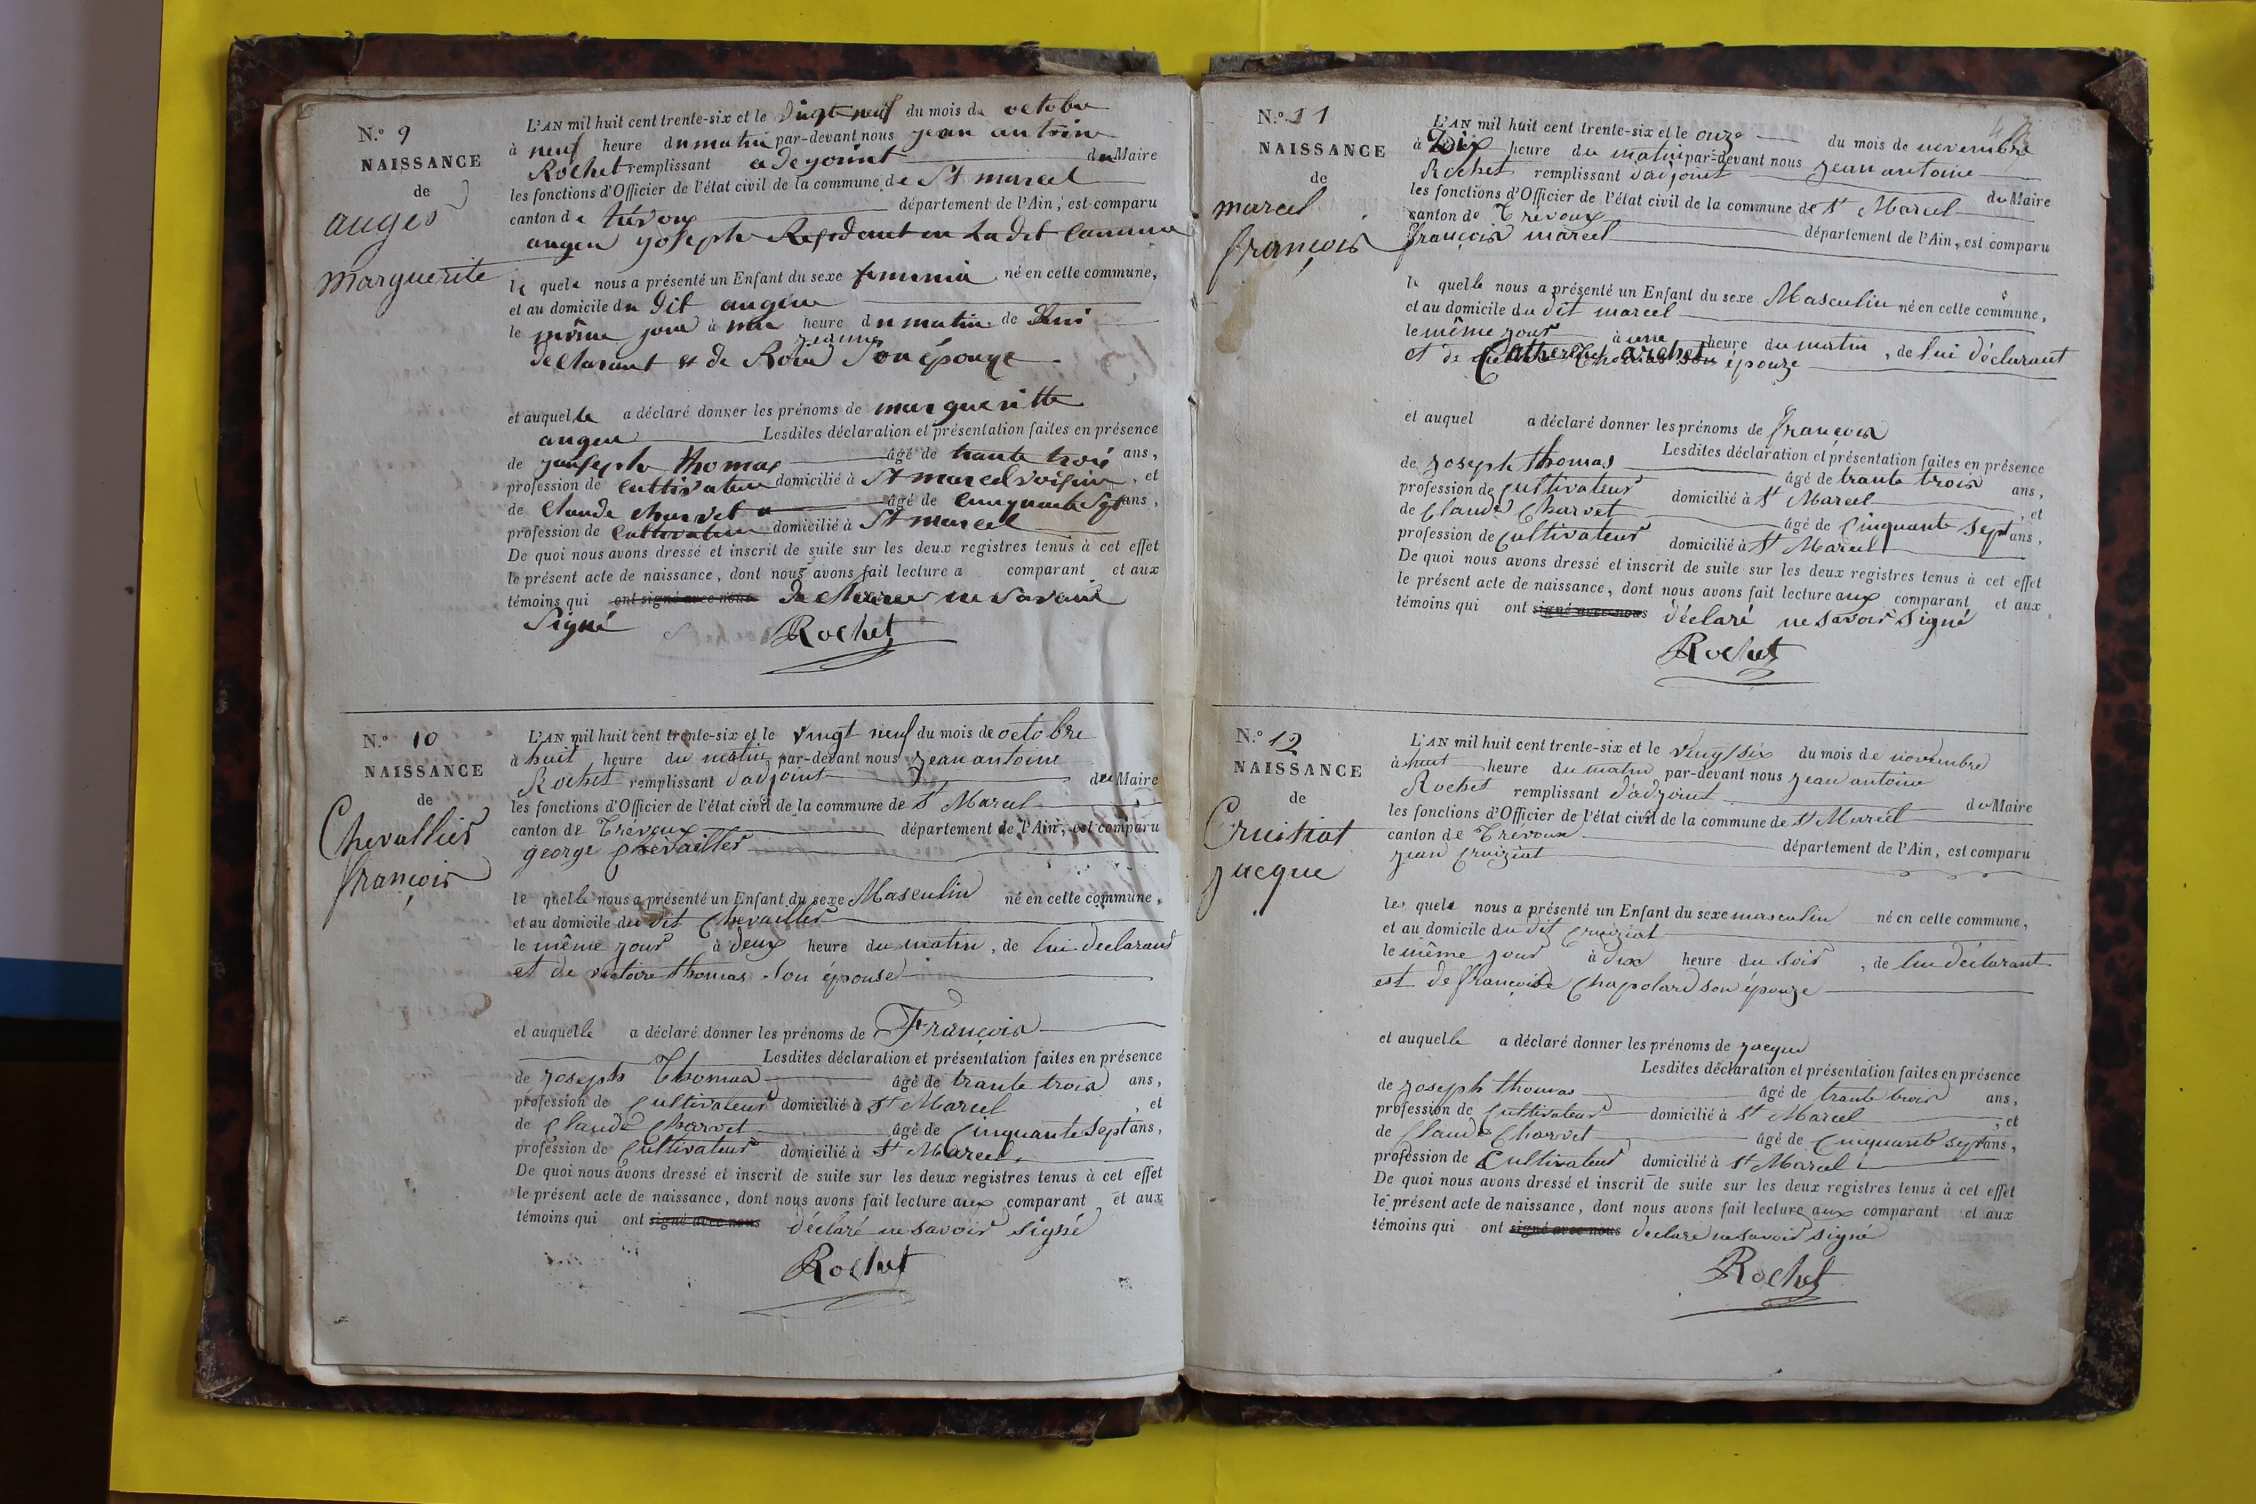 N.º 9
NAISSANCE
de
auges
marguerite
L'AN mil huit cent trente-six et le vingt neuf du mois de octobre
à neuf heure du matin par-devant nous jean antoine
Rochet remplissant adejoint du Maire
les fonctions d'Officier de l'état civil de la commune de St marcel
canton de trévoux département de l'Ain, est comparu
augeu yoseph Residant en Ladit Commune
le quele nous a présenté un Enfant du sexe feminin né en cette commune,
et au domicile du Dit augeu
le même jour à une heure du matin de Lui
jeanne
declarant et de Rose son épouze
et auquelle a déclaré donner les prénoms de margueritte
augeu Lesdites déclaration et présentation faites en présence
de thomas âgé de trante trois ans,
profession de Cultivateur domicilié à St marcel voisin, et
de claude charvet âgé de Cinquante Sept ans,
profession de Cultivateur domicilié à St marcel
De quoi nous avons dressé et inscrit de suite sur les deux registres tenus à cet effet
le présent acte de naissance, dont nous avons fait lecture a comparant et aux
témoins qui ont signé avec nous ne savoir
Signé Rochet
N.º 10
NAISSANCE
de
Chevallier
françois
L'AN mil huit cent trente-six et le vingt neuf du mois de octobre
à huit heure du matin par-devant nous jean antoine
Rochet remplissant d'adjoint du Maire
les fonctions d'Officier de l'état civil de la commune de St Marcel
canton de Trévoux département de l'Ain, est comparu
george Chevallier
le quelle nous a présenté un Enfant du sexe Masculin né en cette commune,
et au domicile du dit Chevallier
le même jour à deux heure du matin, de lui declarand
et de victoire thomas son épouse
et auquelle a déclaré donner les prénoms de François
Lesdites déclaration et présentation faites en présence
de joseph Thomas âgé de trante trois ans,
profession de Cultivateur domicilié à St Marcel, et
de Claude Charvet âgé de Cinquante sept ans,
profession de Cultivateur domicilié à St Marcel,
De quoi nous avons dressé et inscrit de suite sur les deux registres tenus à cet effet
le présent acte de naissance, dont nous avons fait lecture aux comparant et aux
témoins qui ont signé avec nous déclaré ne savoir signé
Rochet
N.º 11
NAISSANCE
de
marcel
françois
L'AN mil huit cent trente-six et le onze du mois de novembre
à Dix heure du matin par-devant nous jean antoine
Rochet remplissant d'adjoint du Maire
les fonctions d'Officier de l'état civil de la commune de St Marcel
canton de Trévoux département de l'Ain, est comparu
françois marcel
le quelle nous a présenté un Enfant du sexe Masculin né en cette commune,
et au domicile du dit marcel
le même jour à une heure du matin, de lui déclarant
et de Catherine archet son épouze
et auquel a déclaré donner les prénoms de françois
Lesdites déclaration et présentation faites en présence
de joseph thomas âgé de trante trois ans,
profession de Cultivateur domicilié à St Marcel, et
de Claude Charvet âgé de Cinquante sept ans,
profession de Cultivateur domicilié à St Marcel
De quoi nous avons dressé et inscrit de suite sur les deux registres tenus à cet effet
le présent acte de naissance, dont nous avons fait lecture aux comparant et aux
témoins qui ont signé avec nous déclaré ne savoir signé
Rochet
N.º 12
NAISSANCE
de
Cruisiat
jacque
L'AN mil huit cent trente-six et le vingt six du mois de novembre
à huit heure du matin par-devant nous jean antoine
Rochet remplissant d'adjoint du Maire
les fonctions d'Officier de l'état civil de la commune de St Marcel
canton de Trévoux département de l'Ain, est comparu
jean Cruiziat
le quele nous a présenté un Enfant du sexe masculin né en cette commune,
et au domicile du dit Cruiziat
le même jour à dix heure du soir, de lui déclarant
est de françoise Chapolard son épouze
et auquelle a déclaré donner les prénoms de jacque
Lesdites déclaration et présentation faites en présence
de joseph thomas âgé de trante trois ans,
profession de Cultivateur domicilié à St Marcel, et
de Claude Charvet âgé de Cinquante sept ans,
profession de Cultivateur domicilié à St Marcel
De quoi nous avons dressé et inscrit de suite sur les deux registres tenus à cet effet
le présent acte de naissance, dont nous avons fait lecture aux comparant et aux
témoins qui ont signé avec nous declaré ne savoir signé
Rochet